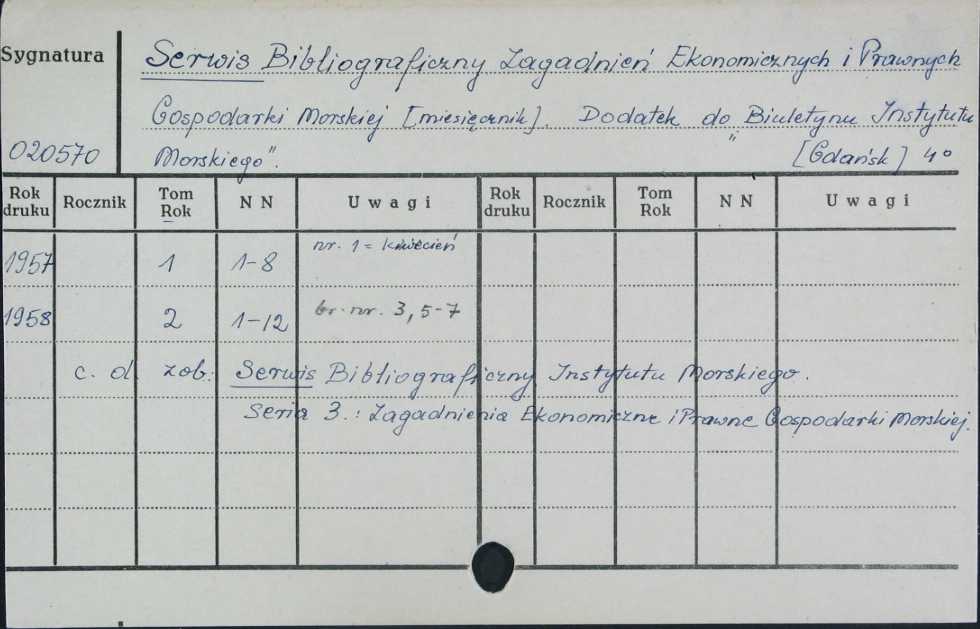 Sygnatura
020570
Serwis Bibliograficzny Zagadnień Ekonomicznych i Prawnych
Gospodarki Morskiej [miesięcznik]. Dodatek do „Biuletynu Instytutu
Morskiego". [Gdańsk] 4°
Rok druku Rocznik Tom Rok NN Uwagi Rok druku Rocznik Tom Rok NN Uwagi
1957 1 1-8 nr. 1 = kwiecień
1958 2 1-12 br. nr. 3, 5-7
c. d. zob: Serwis Bibliograficzny Instytutu Morskiego.
Seria 3.: Zagadnienia Ekonomiczne i Prawne Gospodarki Morskiej.